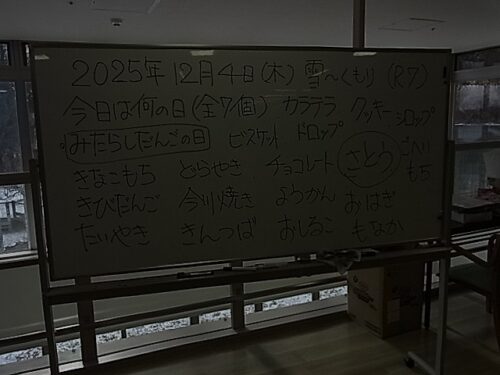 2025年12月4日(木) 雪〜くもり (R7)
今日は何の日(全7個) カラテラ クッキー シロップ
みたらしだんごの日 ビスケット ドロップ さとう ごへい
きなこもち どらやき チョコレート もち
きびだんご 今川焼き ようかん おはぎ
たいやき きんつば おしるこ もなか